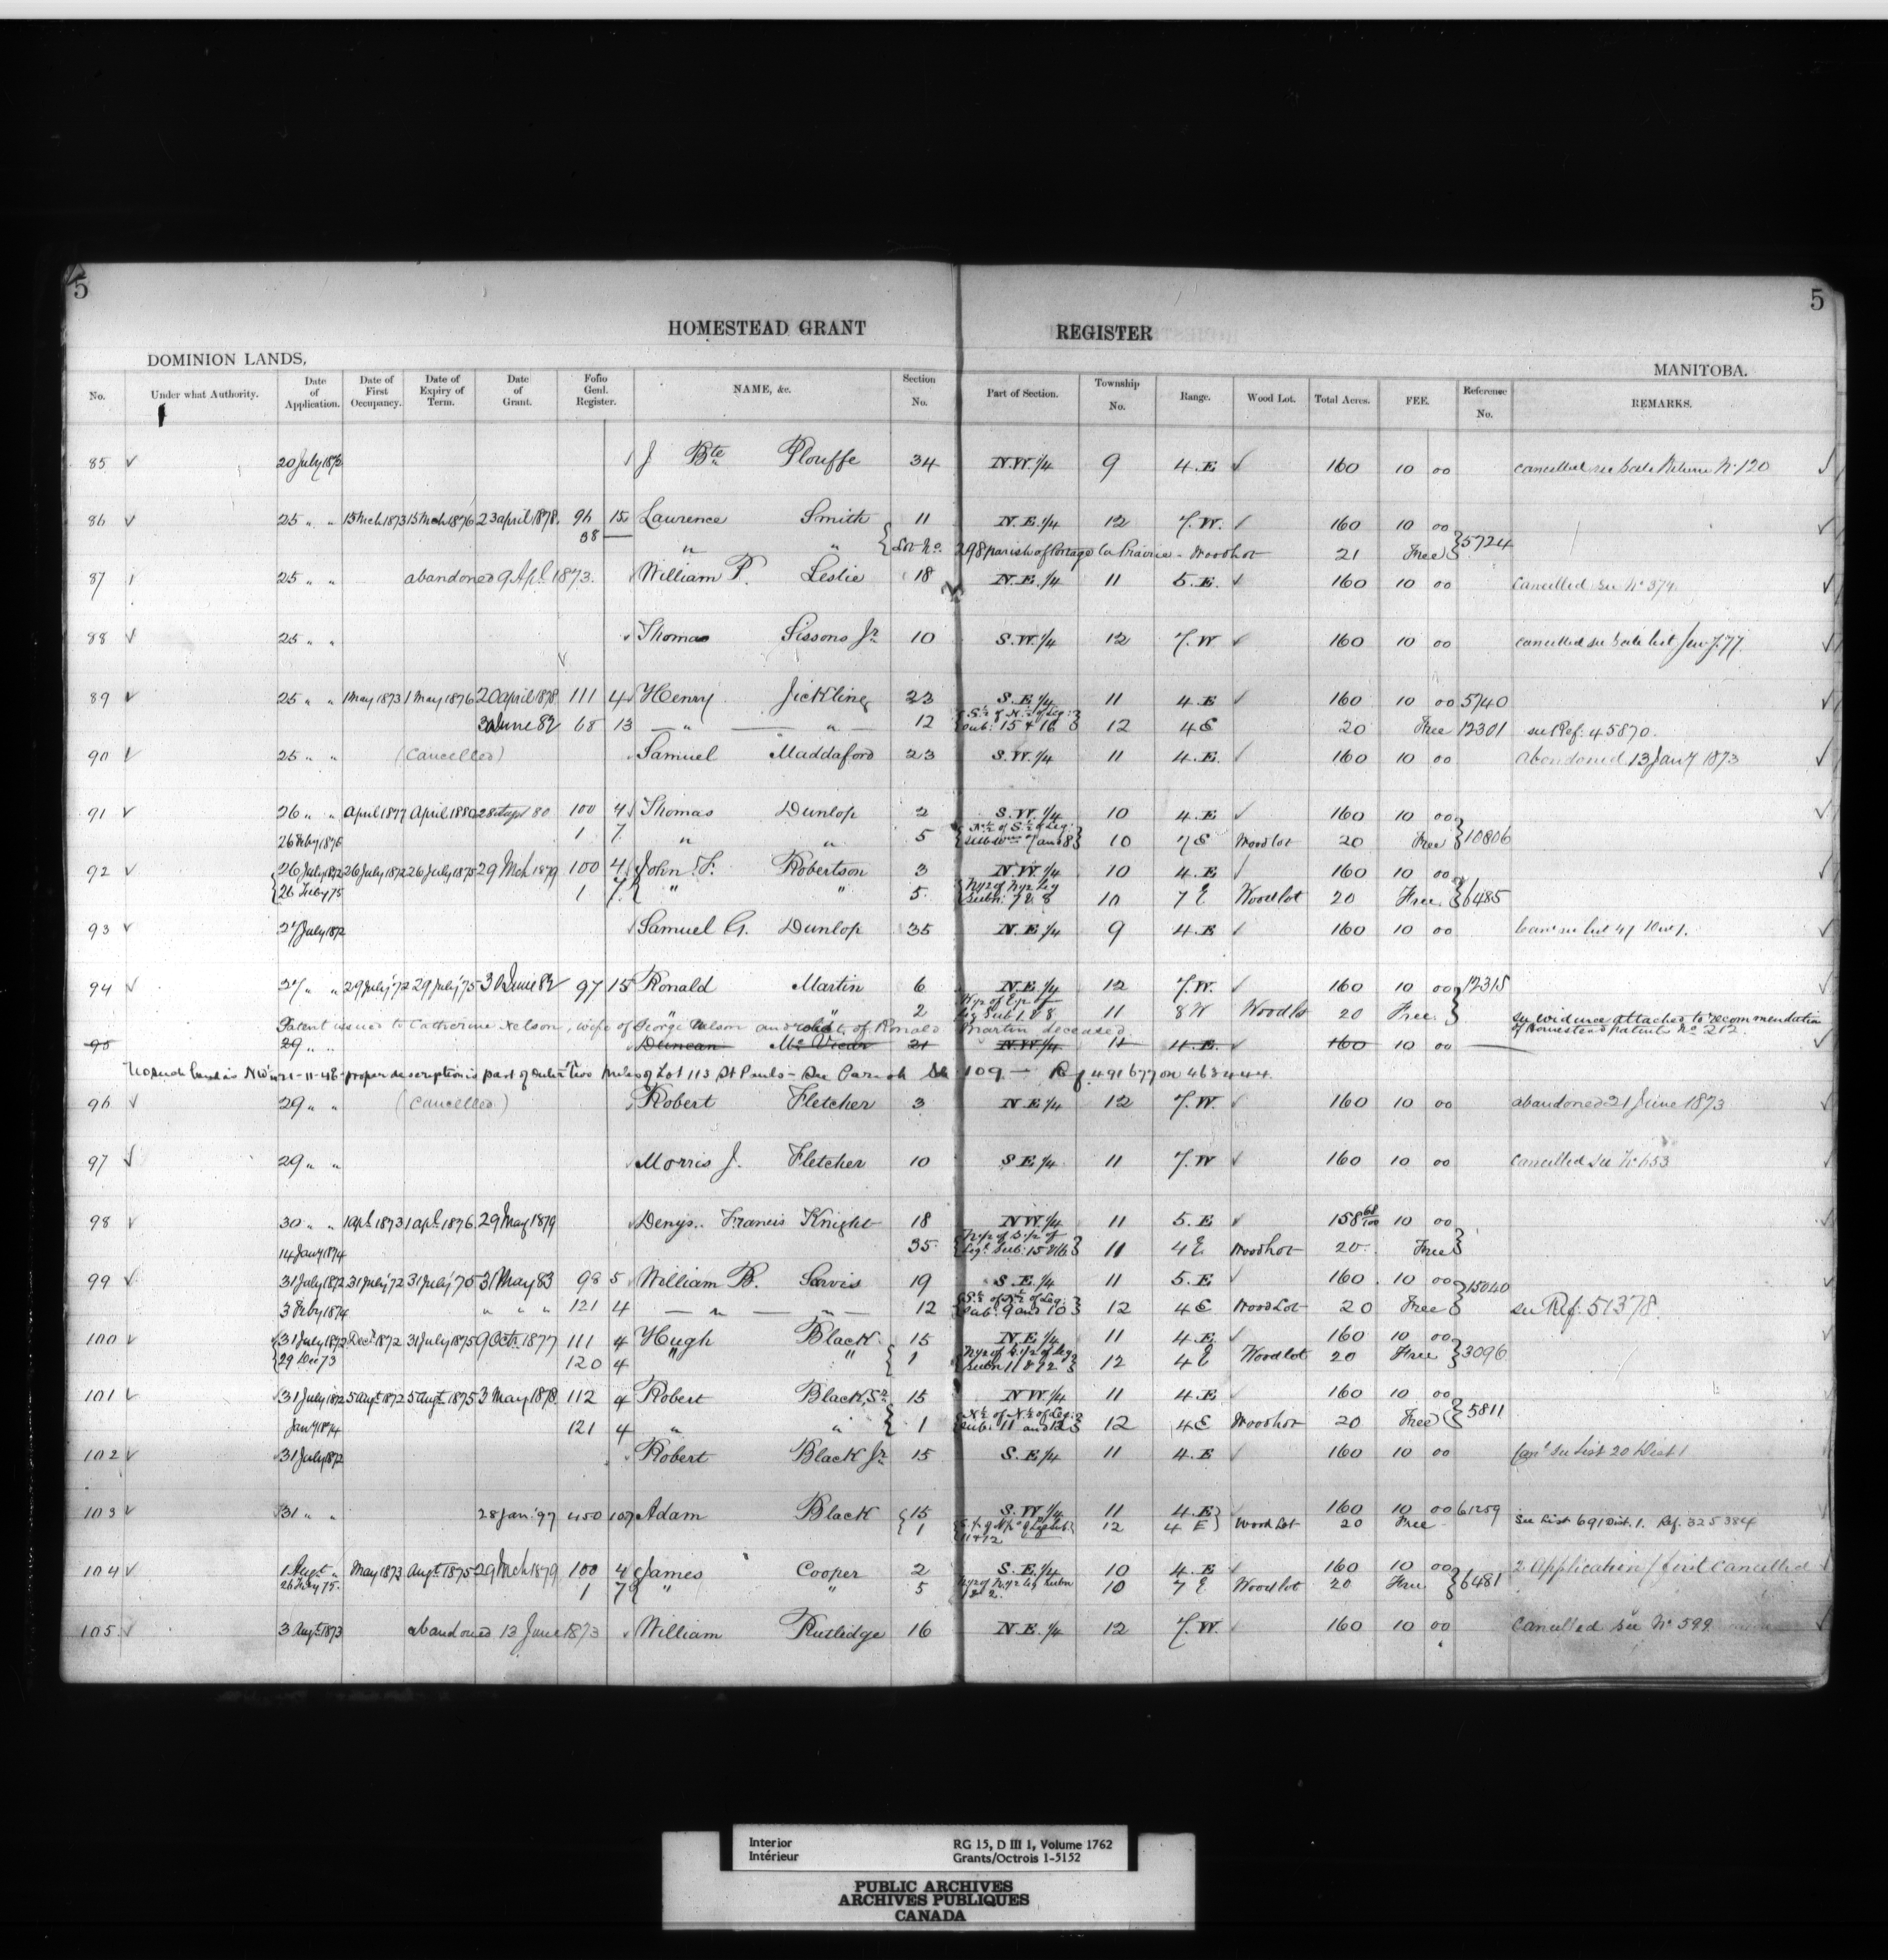 5
5
HOMESTEAD GRANT REGISTER
DOMINION LANDS,
MANITOBA.
No. Under what Authority. Date of Application. Date of First Occupancy. Date of Expiry of Term. Date of Grant. Folio Genl. Register. NAME, &c. Section No. Part of Section. Township No. Range. Wood Lot. Total Acres. FEE. Reference No. REMARKS.
85 20 July 1872 J Bte Plouffe 34 N.W. 1/4 9 4.E 160 10 00 cancelled see No 120
86 25 " " 15 Mch 1873 15 Mch 1876 23 april 1878 96 15 Lawrence Smith 11 N.E. 1/4 12 7.W. 160 10 00 5724
38 " " Lot No. 298 parish of Portage La Prairie - Wood Lot 21 Free
87 25 " " abandoned 9 Apl. 1873. William P. Leslie 18 N.E. 1/4 11 5.E. 160 10 00 Cancelled see No 374
88 25 " " Thomas Sissons Jr 10 S.W. 1/4 12 7.W 160 10 00 cancelled see list
89 25 " " 1 May 1873 1 May 1876 20 april 1878 111 4 Henry Jickling 23 S.E. 1/4 11 4.E 160 10 00 5740
30 June 82 68 13 " " 12 S. 1/2 of N. 1/2 of Leg: Sub: 15 & 16 12 4 E 20 Free 12301 see Ref. 45870.
90 25 " " (Cancelled) Samuel Maddaford 23 S.W. 1/4 11 4.E. 160 10 00 Abandoned 13 Jany 1873
91 26 " " April 1877 April 1880 28 Sept 80 100 4 Thomas Dunlop 2 S.W. 1/4 10 4.E 160 10 00 10806
26 Feby 1875 1 7 " " 5 N. 1/2 of S. 1/2 of Leg: 7 and 8 10 7 E Wood lot 20 Free
92 26 July 1872 26 July 1872 26 July 1875 29 Mch 1879 100 4 John F. Robertson 3 N.W. 1/4 10 4.E 160 10 00 6485
26 Feby 75 1 7 " " 5 N 1/2 of N 1/2 Leg Subn: 7 & 8 10 7 E Wood lot 20 Free
93 27 July 1872 Samuel G. Dunlop 35 N.E. 1/4 9 4.E 160 10 00
94 27 " " 29 July '72 29 July '75 30 June 82 97 15 Ronald Martin 6 N.E. 1/4 12 7.W. 160 10 00 12315
" " 2 Leg Sub 1 & 8 11 8 W Wood lot 20 Free. see evidence attached to recommendation of Homestead patents No 212.
Patent issued to Catherine Nelson, wife of George Nelson and relict of Ronald Martin deceased
95 29 " " Duncan Mc Vicar 21 N.W. 1/4 11 4.E. 160 10 00
No such land as N.W. 1/4 21-11-4E- proper description is part of Outer Two Miles of Lot 113 St Pauls - See Parish 109 - Ref 491677 on 463444.
96 29 " " (Cancelled) Robert Fletcher 3 N.E 1/4 12 7.W. 160 10 00 abandoned 21 June 1873
97 29 " " Morris J. Fletcher 10 S.E. 1/4 11 7.W 160 10 00 cancelled see No 653
98 30 " " 1 apl. 1873 1 apl. 1876 29 May 1879 Denys. Francis Knight 18 N.W. 1/4 11 5.E 158 68/100 10 00
14 Jany 1874 35 N 1/2 of S. 1/2 of Leg. Sub: 15 & 16 11 4 E Wood Lot 20 Free
99 31 July 1872 31 July '72 31 July '75 31 May 83 98 5 William B. Sarvis 19 S.E. 1/4 11 5.E 160 10 00 15040
3 Feby 1874 " " " 121 4 " " 12 S. 1/2 of N. 1/2 of Leg: Sub: 9 and 10 12 4 E Wood Lot 20 Free see Ref. 51378.
100 31 July 1872 Decr 1872 31 July 1875 9 Octr. 1877 111 4 Hugh Black 15 N.E. 1/4 11 4.E. 160 10 00 3096
29 Dec 73 120 4 " " 1 N 1/2 of S. 1/2 of Leg Subn 11 & 12 12 4 E Wood lot 20 Free
101 31 July 1872 5 augt. 1872 5 augt. 1875 3 May 1878 112 4 Robert Black, Sr 15 N.W. 1/4 11 4.E 160 10 00 5811
Jany 1874 121 4 " " 1 N. 1/2 of N. 1/2 of Leg: Sub: 11 and 12 12 4 E Wood Lot 20 Free
102 31 July 1872 Robert Black Jr 15 S.E 1/4 11 4.E 160 10 00 Canl see List 20 Dist 1
103 31 " " 28 Jan. '97 450 107 Adam Black 15 S.W. 1/4 11 4.E 160 10 00 61259
1 S. 1/2 of N 1/2 of Leg Sub 11 & 12 12 4 E Wood Lot 20 Free See List 691 Dist. 1. Ref. 325384
104 1 Augt " May 1873 Augt. 1875 29 Mch 1879 100 4 James Cooper 2 S.E. 1/4 10 4.E 160 10 00 6481 2 Application / first cancelled
26 Feby 75. 1 7 " " 5 N 1/2 of N 1/2 Leg Subn 1 & 2 10 7 E Wood lot 20 Free
105. 3 Augt. 1873 abandoned 13 June 1873 William Rutledge 16 N.E. 1/4 12 7.W. 160 10 00 Cancelled see No 599
Interior
Intérieur
RG 15, D III 1, Volume 1762
Grants/Octrois 1-5152
PUBLIC ARCHIVES
ARCHIVES PUBLIQUES
CANADA